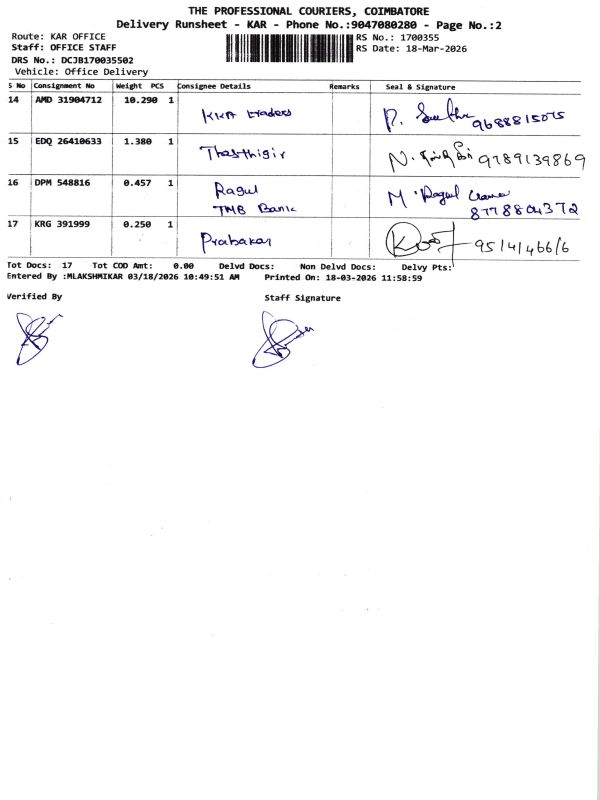 THE PROFESSIONAL COURIERS, COIMBATORE
Delivery Runsheet - KAR - Phone No.:9047080280 - Page No.:2
Route: KAR OFFICE
Staff: OFFICE STAFF
DRS No.: DCJB170035502
Vehicle: Office Delivery
RS No.: 1700355
RS Date: 18-Mar-2026
S No Consignment No Weight PCS Consignee Details Remarks Seal & Signature
14 AMD 31904712 10.290 1 KKA traders 9688815075
15 EDQ 26410633 1.380 1 Thasthigir N. 9789139869
16 DPM 548816 0.457 1 Ragul M Ragul
TMB Bank 8778804372
17 KRG 391999 0.250 1 Prabakar
Tot Docs: 17 Tot COD Amt: 0.00 Delvd Docs: Non Delvd Docs: Delvy Pts:
Entered By :MLAKSHMIKAR 03/18/2026 10:49:51 AM Printed On: 18-03-2026 11:58:59
Verified By Staff Signature